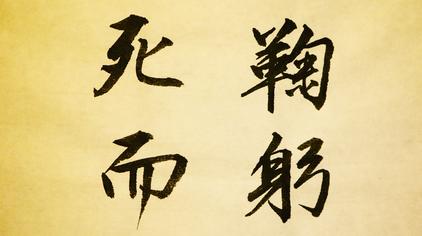 鞠躬
死而